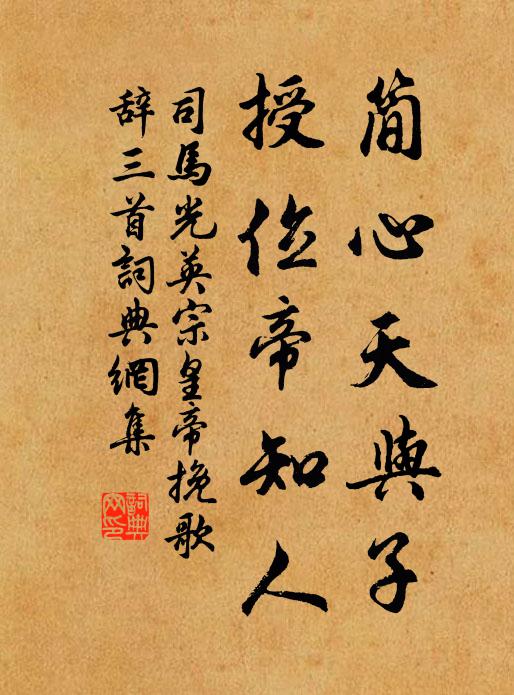 简心天與子
授位帝知人
司馬光英宗皇帝挽歌
辞三首詞典網集
詞典
网印